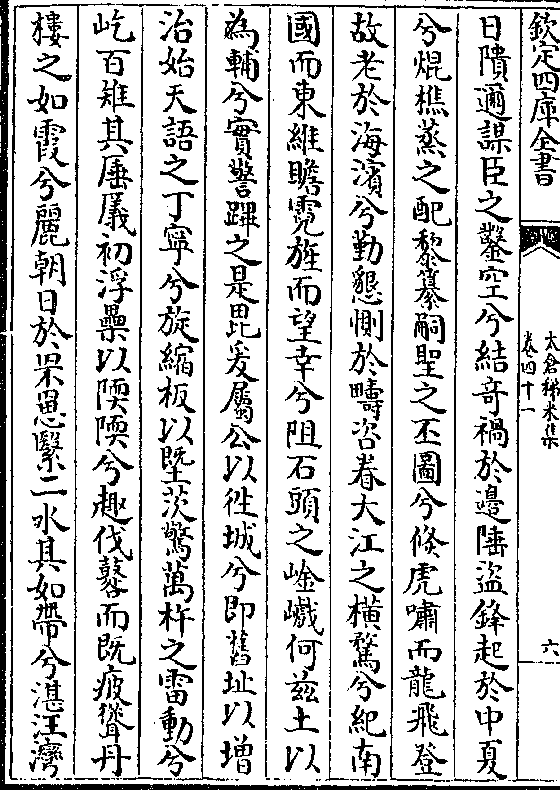 欽定四庫全書
太倉稊米集
卷四十一
六
日隤邇謀臣之鑿空兮結竒禍於邊陲盜鋒起於中夏
兮焜樵蒸之配藜纂嗣聖之丕圖兮倐虎嘯而龍飛登
故老於海濱兮勤懇惻於疇咨眷大江之横騖兮紀南
國而東維瞻霓旌而望幸兮阻石頭之崯巇何兹土以
為輔兮實警蹕之是毘爰屬公以徃城兮即舊址以增
治始天語之丁寧兮旋縮板以墍茨驚萬杵之雷動兮
屹百雉其厜㕒初浮壘以陾陾兮趣伐鼛而既疲聳丹
樓之如霞兮麗朝日於罘罳繄二水其如帶兮湛汪灣